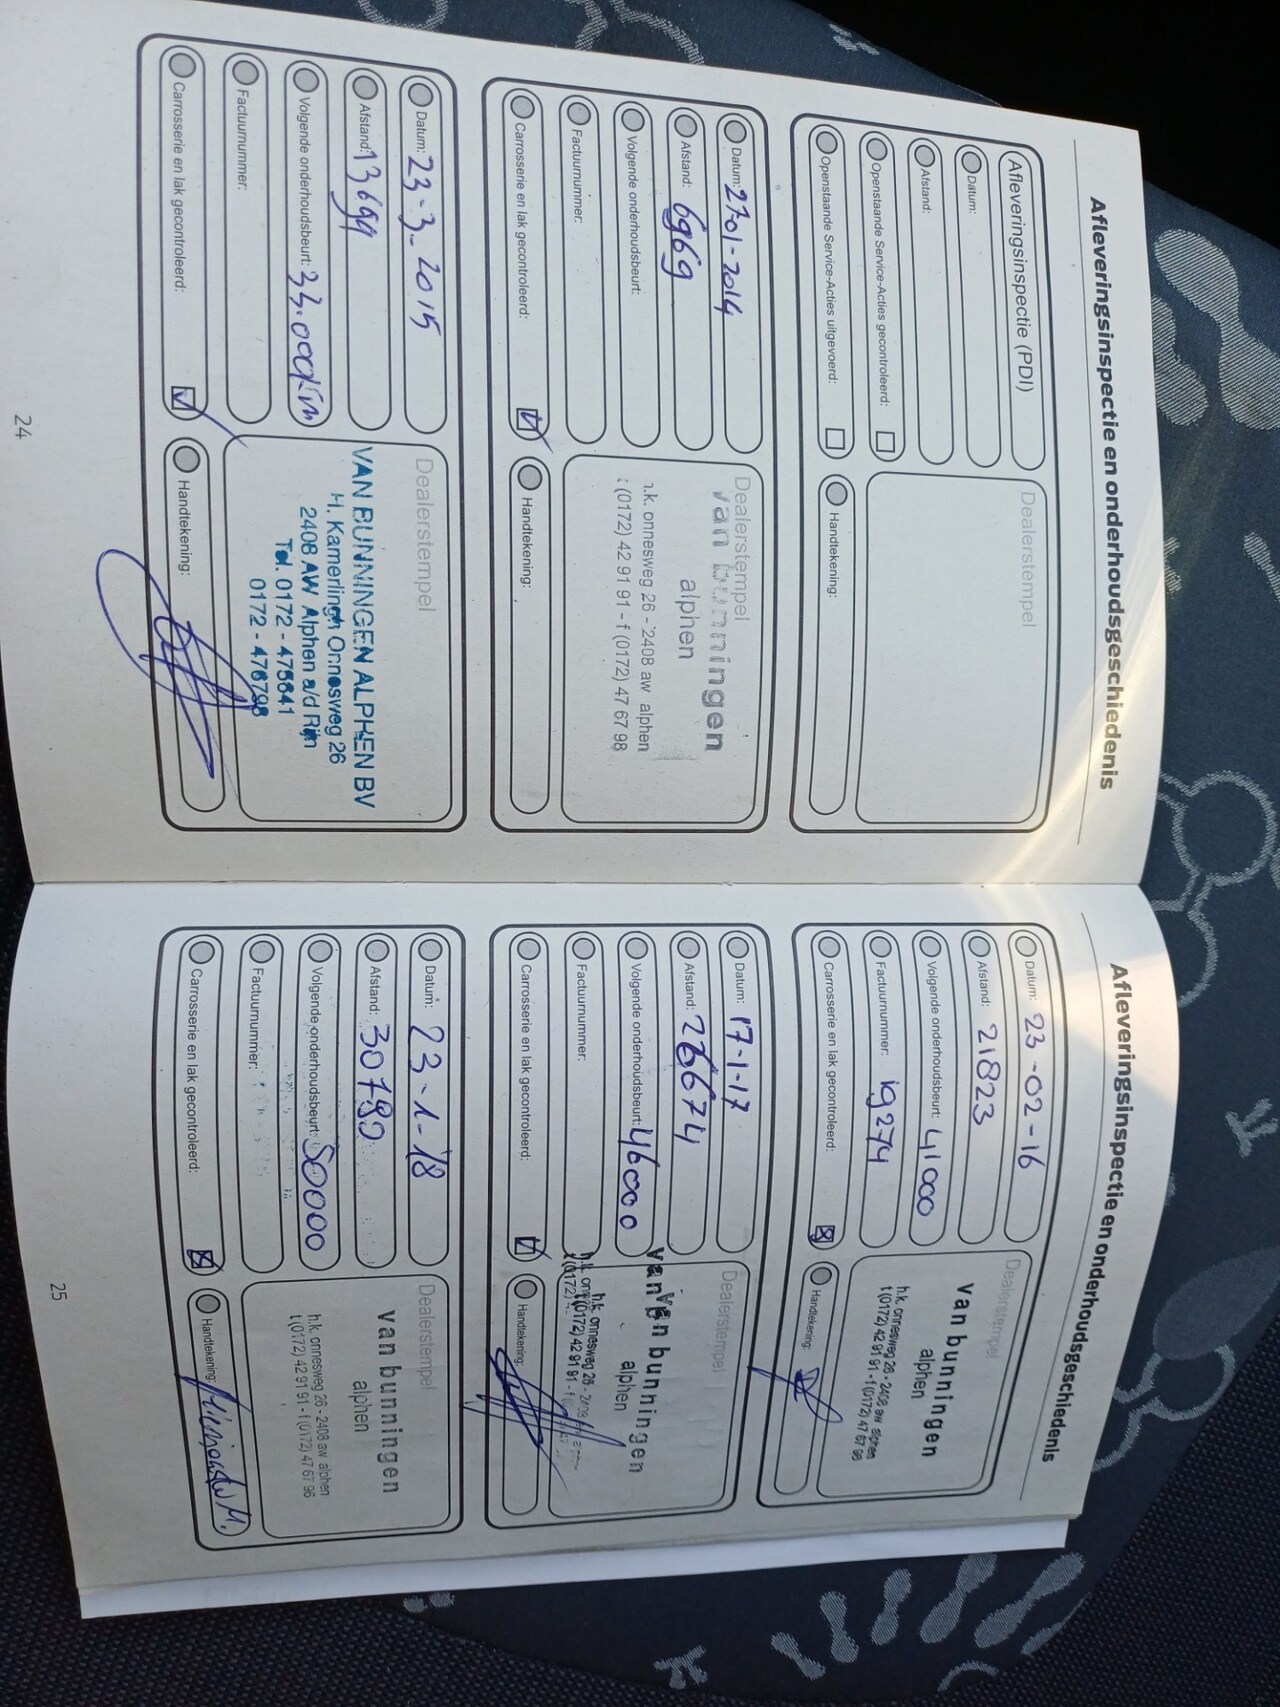 Afleveringsinspectie en onderhoudsgeschiedenis
Afleveringsinspectie (PDI)
Datum:
Afstand:
Openstaande Service-Acties gecontroleerd:
Openstaande Service-Acties uitgevoerd:
Dealerstempel
Handtekening:
Datum: 27-01-2014
Afstand: 6969
Volgende onderhoudsbeurt:
Factuurnummer:
Carrosserie en lak gecontroleerd:
Dealerstempel
van bunningen
alphen
h.k. onnesweg 26 - 2408 aw alphen
t (0172) 42 91 91 - f (0172) 47 67 98
Handtekening:
Datum: 23-3-2015
Afstand: 13699
Volgende onderhoudsbeurt: 33.000km
Factuurnummer:
Carrosserie en lak gecontroleerd:
Dealerstempel
VAN BUNNINGEN ALPHEN BV
H. Kamerlingh Onnesweg 26
2408 AW Alphen a/d Rijn
Tel. 0172 - 475641
0172 - 476798
Handtekening:
24
Afleveringsinspectie en onderhoudsgeschiedenis
Datum: 23-02-16
Afstand: 21823
Volgende onderhoudsbeurt: 41000
Factuurnummer: 19274
Carrosserie en lak gecontroleerd:
Dealerstempel
van bunningen
alphen
h.k. onnesweg 26 - 2408 aw alphen
t (0172) 42 91 91 - f (0172) 47 67 98
Handtekening:
Datum: 17-1-17
Afstand: 26674
Volgende onderhoudsbeurt: 46000
Factuurnummer:
Carrosserie en lak gecontroleerd:
Dealerstempel
van bunningen
alphen
h.k. onnesweg 26 - 2408
t (0172) 42 91 91 - f
Handtekening:
Datum: 23-1-18
Afstand: 30789
Volgende onderhoudsbeurt: 50000
Factuurnummer:
Carrosserie en lak gecontroleerd:
Dealerstempel
van bunningen
alphen
h.k. onnesweg 26 - 2408 aw alphen
t (0172) 42 91 91 - f (0172) 47 67 98
Handtekening:
25